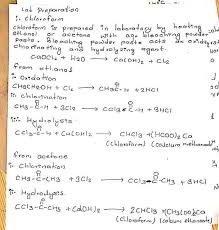 Lab Preparation
i. Chloroform
chloroform is prepared in laboratory by heating
ethanol or acetone with aq. bleaching powder
paste. Bleaching powder paste acts as oxidising
chlorinating and hydrolysing agent.
CaOCl2 + H2O → Ca(OH)2 + Cl2
From ethanol
i. Oxidation
CH3CH2OH + Cl2 → CH3C-H + 2HCl
ii. chlorination
CH3-C-H + 3Cl2 → CCl3C-H + 3HCl
iii. Hydrolysis
CCl3-C-H + Ca(OH)2 → CHCl3 + (HCOO)2Ca
(chloroform) (calcium methanoate)
From acetone
i. Chlorination
CH3-C-CH3 + 3Cl2 → CCl3-C-CH3 + 3HCl
ii. Hydrolysis
CCl3-C-CH3 + Ca(OH)2 → 2CHCl3 + (CH3COO)2Ca
(chloroform) (calcium ethanoate)